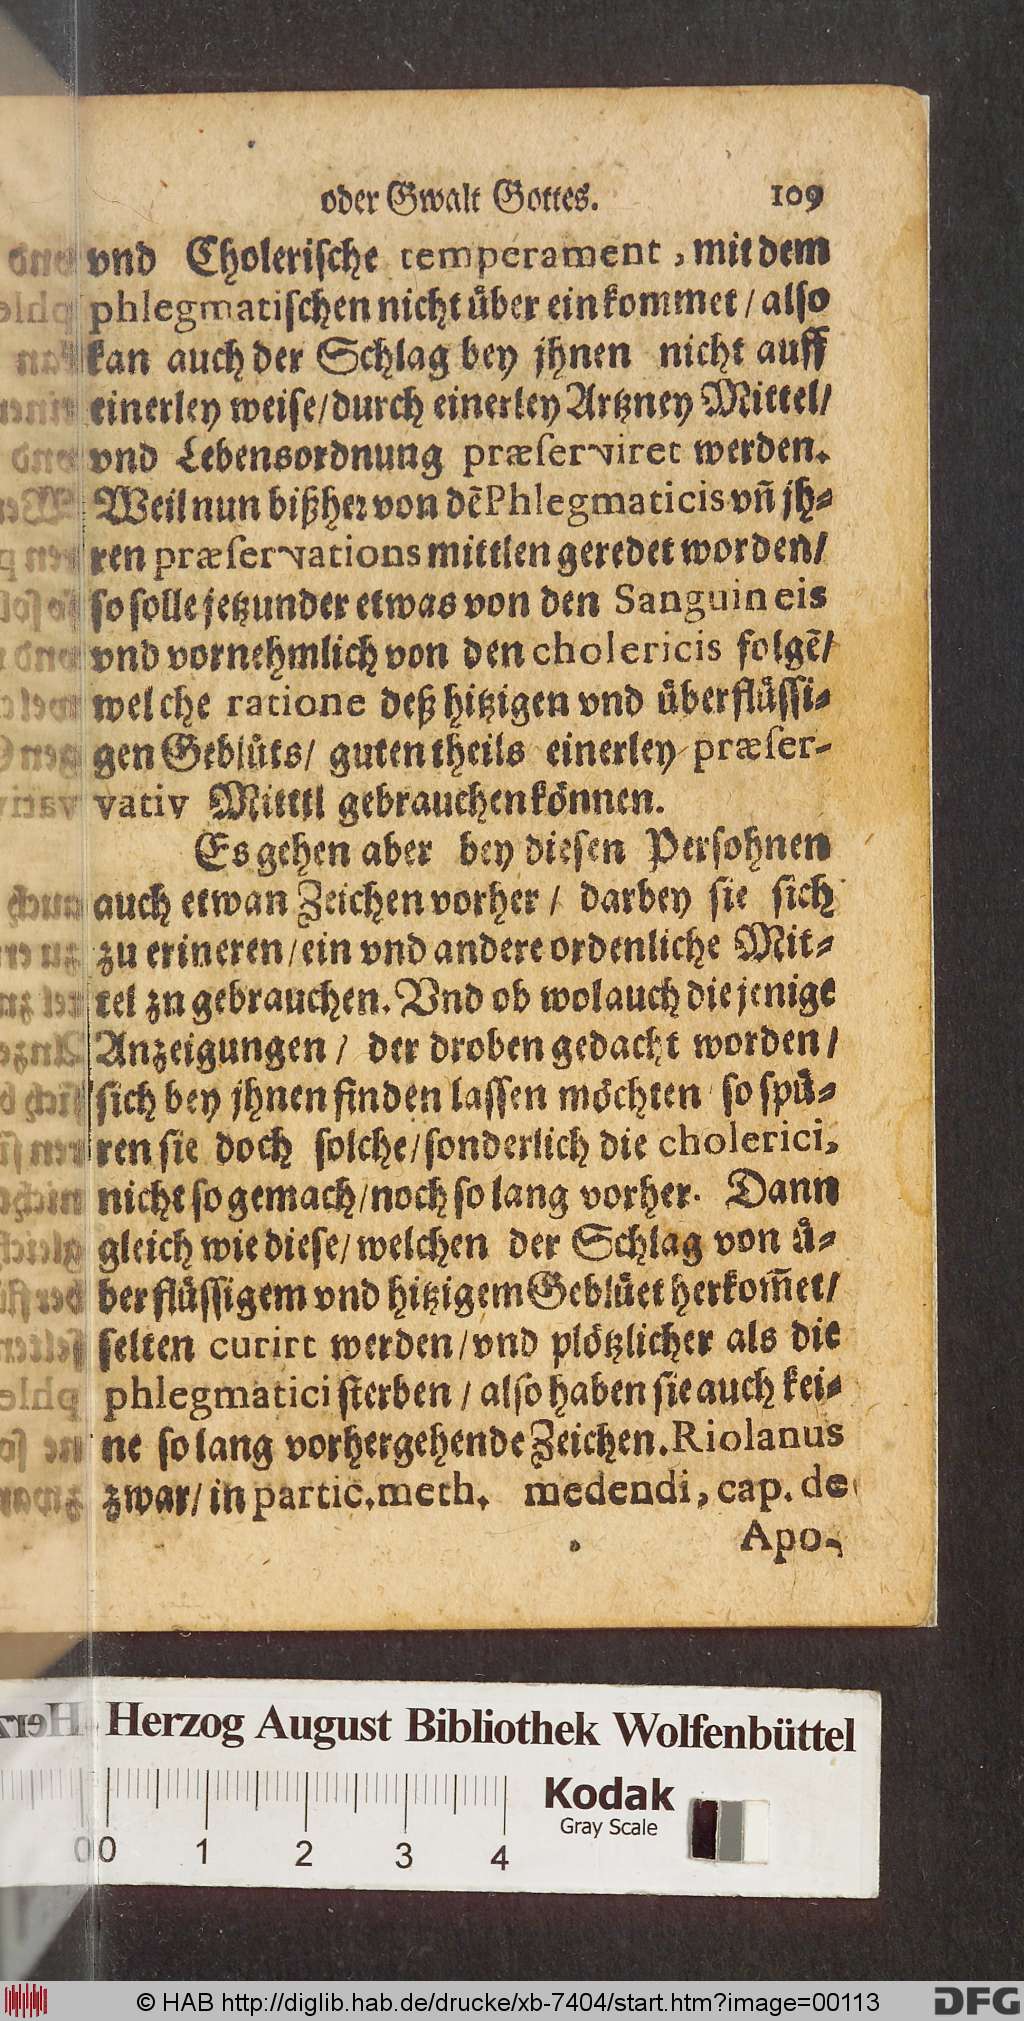 oder Gwalt Gottes. 109
vnd Cholerische temperament, mit dem
phlegmatischen nicht uͤber ein kommet / also
kan auch der Schlag bey jhnen nicht auff
einerley weise/durch einerley Artzney Mittel/
vnd Lebensordnung præserviret werden.
Weil nun bißher von dẽ Phlegmaticis vñ jh-
ren præservations mittlen geredet worden/
so solle jetzunder etwas von den Sanguineis
vnd vornehmlich von den cholericis folgẽ/
welche ratione deß hitzigen vnd uͤberfluͤssi-
gen Gebluͤts/ guten theils einerley præser-
vativ Mitttl gebrauchen koͤnnen.
Es gehen aber bey diesen Persohnen
auch etwan Zeichen vorher / darbey sie sich
zu erineren/ein vnd andere ordenliche Mit-
tel zn gebrauchen. Vnd ob wol auch die jenige
Anzeigungen / der droben gedacht worden/
sich bey jhnen finden lassen moͤchten so spuͤ-
ren sie doch solche/sonderlich die cholerici,
nicht so gemach/noch so lang vorher. Dann
gleich wie diese/welchen der Schlag von uͤ-
berfluͤssigem vnd hitzigem Gebluͤet herkom̃et/
selten curirt werden/vnd ploͤtzlicher als die
phlegmatici sterben / also haben sie auch kei-
ne so lang vorhergehende Zeichen. Riolanus
zwar/ in partic. meth. medendi, cap. de
Apo-
Herzog August Bibliothek Wolfenbüttel
Kodak
Gray Scale
0 1 2 3 4
© HAB http://diglib.hab.de/drucke/xb-7404/start.htm?image=00113
DFG